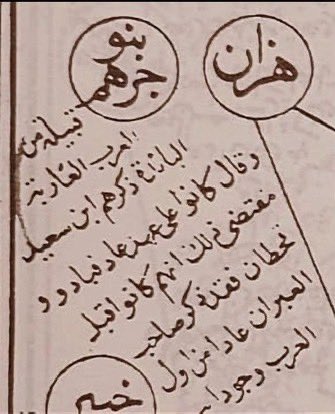 هزان
بنو
جرهم
قبيلة من
العرب العاربة
البائدة ذكرهم ابن سعيد
وقال كانوا على عهد عاد فبادوا و
مقتضى ذلك انهم كانوا قبل
قحطان فقد ذكر صاحب
العبر ان عادا من اول
العرب وجودا